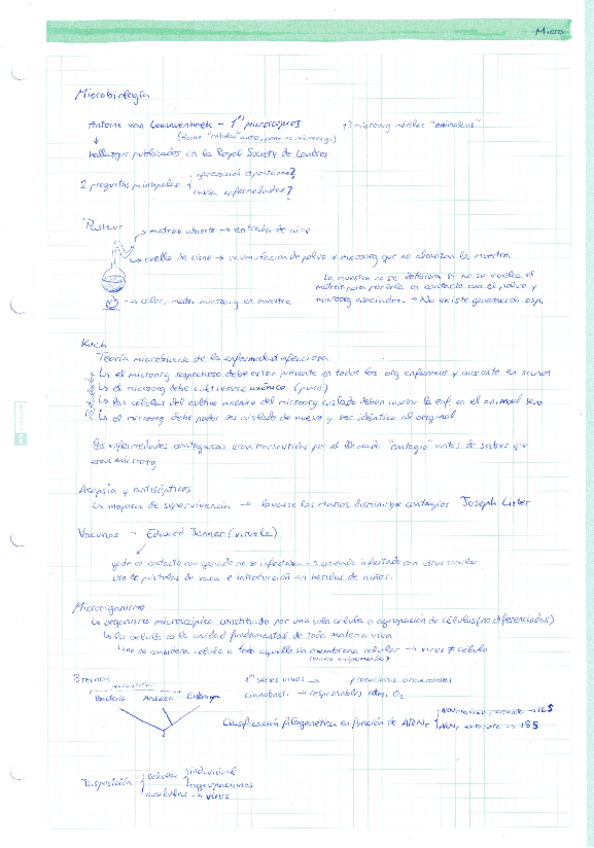 Micro
Microbiología
Antoine van Leeuwenhoek - 1os microscopios ↑ microorg móviles "animáculus"
hallazgos publicados en la Royal Society de Londres
generación espontánea?
2 preguntas principales
causan enfermedades?
Pasteur
matraz abierto → entrada de aire
cuello de cisne → acumulación de polvo y microorg que no alcanzan la muestra
La muestra no se deteriora si no se vuelca el
matraz para ponerla en contacto con el polvo y
→ calor, mata microorg en muestra
microorg asociados. → No existe generación esp.
Koch
Teoría microbiana de la enfermedad infecciosa
Postulados
↳ el microorg sospechoso debe estar presente en todos los org enfermos y ausente en sanos
↳ el microorg debe cultivarse axénico (puro)
↳ las células del cultivo axénico del microorg aislado deben causar la enf. en el animal sano
↳ el microorg debe poder ser aislado de nuevo y ser idéntico al original
Las enfermedades contagiosas eran transmitidas por el llamado "contagio" antes de saberse que
eran microorg
Asepsia y antisépticos
↳ mejora de supervivencia → lavarse las manos disminuye contagios Joseph Lister
Vacunas - Edward Jenner (viruela)
gente en contacto con ganado no se infectaba → ganado infectado con virus similar
uso de pústulas de vaca e introducción en heridas de niños.
Microorganismo
↳ organismo microscópico constituido por una sola célula o agrupación de células (no diferenciadas)
↳ la célula es la unidad fundamental de toda materia viva
no se considera célula a todo aquello sin membrana celular → virus ≠ célula
3 reinos
1os seres vivos → procariotas anaerobios
Bacteria Archaea Eukarya
cianobact. → responsables atm. O2
Clasificación filogenética en función de ARNr
→ 16S
→ 18S
Disposición
celular
individual
agrupaciones
acelulares → virus